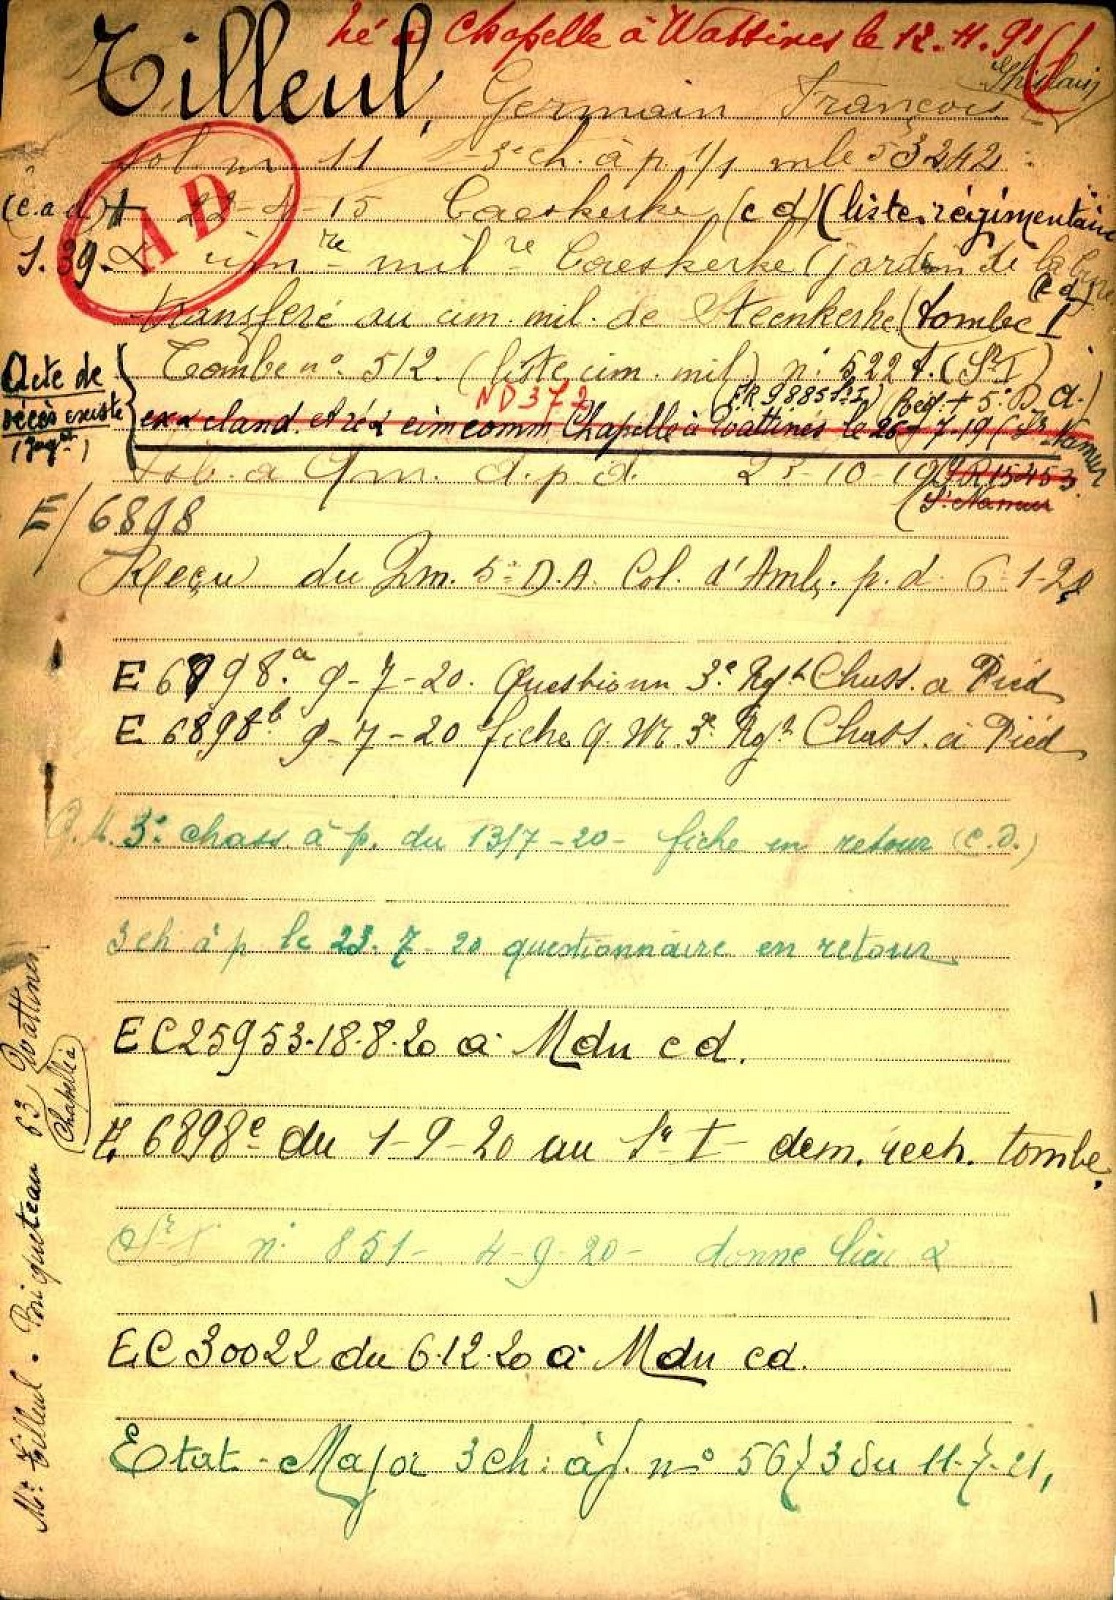 né à Chapelle à Wattines le 12.11.91
Tilleul, Germain François
Ghislain
Sol 11 3e ch. à p. 1/1 mle 53242
(c.a d) + 22-4-15 Caeskerke (c d) (liste régimentaire
AD
S.39. cim re mil re Caeskerke (jardin de la
(c d)
transféré au cim. mil. de Steenkerke (tombe I
Acte de
décès existe
Tombe n° 512. (liste cim. mil) n° 522 t. (Sr I)
ND 372
(ER 9885 Sr I) (Req. + 5e D.A.)
ex cland. et ré cim comm Chapelle à Wattines le 26-7-19 (Sr Namur
Qm. d.p.d. 23-10-19
R15453
Sr Namur
E/6898
Reçu du Qm. 5e D.A. Col. d'Amb. p.d. 6-1-20
E 6898.a 9-7-20. Questionn 3e Rgt Chass. a Pied
E 6898b 9-7-20 fiche Q. M. 3e Rgt Chass. à Pied
Q.M. 3e chass. à p. du 13/7-20- fiche en retour (C.D.)
3ch à p le 23.7-20 questionnaire en retour
EC25953-18.8.20 a Mdn cd.
E 6898c du 1-9-20 au Sr I- dem. rech. tombe.
Sr I n° 851- 4-9-20- donne lieu
EC30022 du 6.12.20 a Mdn cd.
Etat-Major 3ch: à p. n° 5673 du 11-7-21,
Mr Tilleul. Briqueteau 63 Wattines
Chapelle à